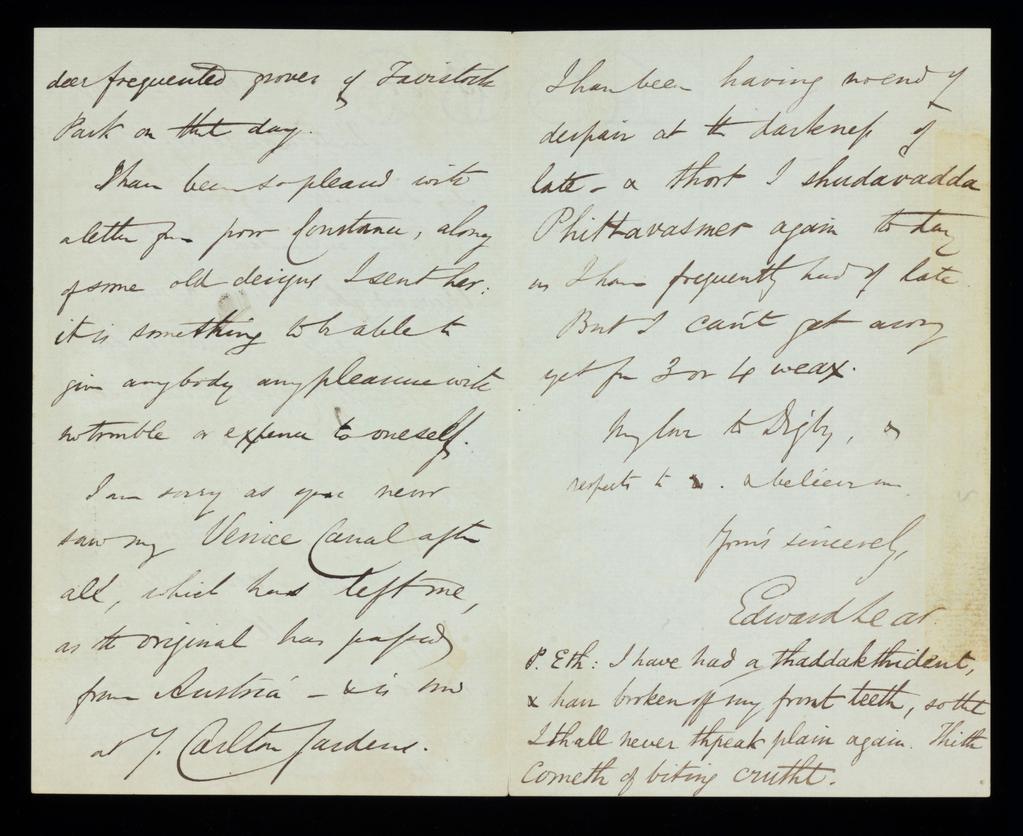 deer frequented groves of Tavistock
Park on that day.
I have been so pleased with
a letter from poor Constance, along
of some old designs I sent her:
it is something to be able to
give anybody any pleasure with
no trouble or expense to oneself.
I am sorry as you never
saw my Venice Canal after
all, which has left me,
as the original has passed
from Austria – & is now
at 7. Carlton Gardens.
I have been having no end of
despair at the darkness of
late – & thort I shudavadda
Phittavasmer again today
as I have frequently had of late
But I can't get away
yet for 3 or 4 weax.
My love to Digby, &
respects to . & believe me
Yours sincerely,
Edward Lear.
P. Eth: I have had a thaddakthident,
& have broken off my front teeth, so that
I thall never thpeak plain again. Thith
cometh of biting crutht.